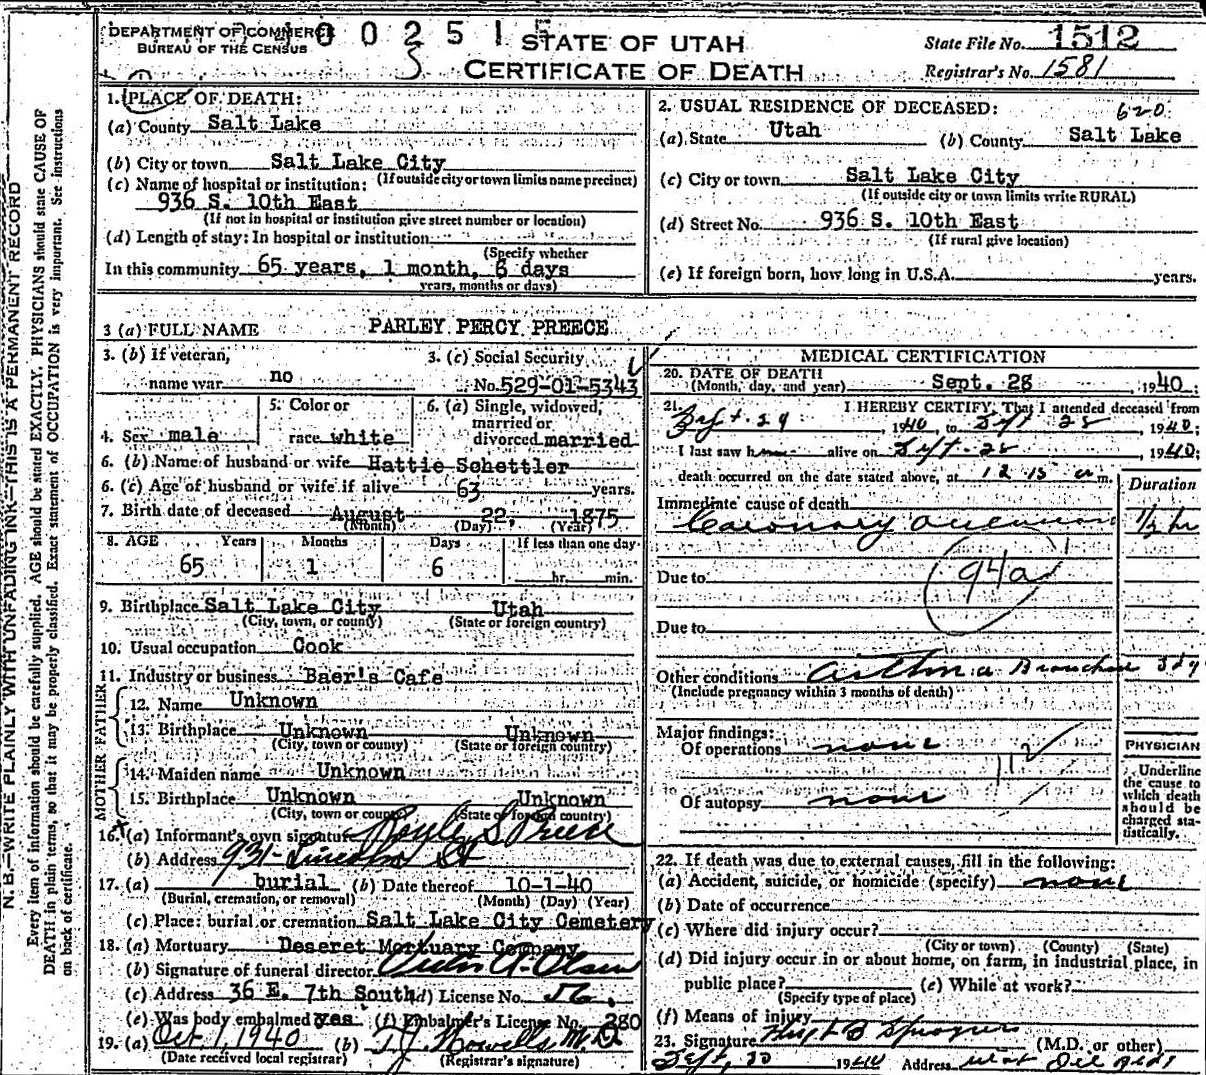 DEPARTMENT OF COMMERCE
BUREAU OF THE CENSUS
0 0 2 5 1 5
STATE OF UTAH
CERTIFICATE OF DEATH
State File No. 1512
Registrar's No. 1581
1. PLACE OF DEATH:
(a) County Salt Lake
(b) City or town Salt Lake City
(If outside city or town limits name precinct)
(c) Name of hospital or institution:
936 S. 10th East
(If not in hospital or institution give street number or location)
(d) Length of stay: In hospital or institution
(Specify whether
In this community 65 years, 1 month, 6 days
years, months or days)
2. USUAL RESIDENCE OF DECEASED: 620
(a) State Utah (b) County Salt Lake
(c) City or town Salt Lake City
(If outside city or town limits write RURAL)
(d) Street No. 936 S. 10th East
(If rural give location)
(e) If foreign born, how long in U.S.A. years.
3 (a) FULL NAME PARLEY PERCY PREECE
3. (b) If veteran,
name war no
3. (c) Social Security
No. 529-01-5343
4. Sex male
5. Color or
race white
6. (a) Single, widowed,
married or
divorced married
6. (b) Name of husband or wife Hattie Schettler
6. (c) Age of husband or wife if alive 63 years.
7. Birth date of deceased August 22, 1875
(Month) (Day) (Year)
8. AGE Years Months Days If less than one day
65 1 6 hr. min.
9. Birthplace Salt Lake City Utah
(City, town, or county) (State or foreign country)
10. Usual occupation Cook
11. Industry or business Baer's Cafe
FATHER
12. Name Unknown
13. Birthplace Unknown Unknown
(City, town or county) (State or foreign country)
MOTHER
14. Maiden name Unknown
15. Birthplace Unknown Unknown
(City, town or county) (State or foreign country)
16. (a) Informant's own signature S Preece
(b) Address 931 Lincoln St
17. (a) burial (b) Date thereof 10-1-40
(Burial, cremation, or removal) (Month) (Day) (Year)
(c) Place: burial or cremation Salt Lake City Cemetery
18. (a) Mortuary Deseret Mortuary Company
(b) Signature of funeral director A. Olsen
(c) Address 36 E. 7th South (d) License No. 56
(e) Was body embalmed yes (f) Embalmer's License No. 280
19. (a) Oct 1, 1940 (b) T.J. Howells M.D.
(Date received local registrar) (Registrar's signature)
MEDICAL CERTIFICATION
20. DATE OF DEATH
(Month, day, and year) Sept. 28 1940;
21. I HEREBY CERTIFY, That I attended deceased from
Sept. 1940, to Sept 28, 1940;
I last saw h alive on Sept-28, 1940;
death occurred on the date stated above, at 12 15 a m.
Duration
Immediate cause of death
Coronary occlusion 1/2 hr
Due to
94a
Due to
Other conditions Asthma Bronchial
(Include pregnancy within 3 months of death)
Major findings:
Of operations none
Of autopsy none
PHYSICIAN
Underline
the cause to
which death
should be
charged sta-
tistically.
22. If death was due to external causes, fill in the following:
(a) Accident, suicide, or homicide (specify) none
(b) Date of occurrence
(c) Where did injury occur?
(City or town) (County) (State)
(d) Did injury occur in or about home, on farm, in industrial place, in
public place? (e) While at work?
(Specify type of place)
(f) Means of injury
23. Signature B (M.D. or other)
Sept, 30 1940 Address
N. B.—WRITE PLAINLY WITH UNFADING INK—THIS IS A PERMANENT RECORD
Every item of information should be carefully supplied. AGE should be stated EXACTLY. PHYSICIANS should state CAUSE OF
DEATH in plain terms, so that it may be properly classified. Exact statement of OCCUPATION is very important. See instructions
on back of certificate.